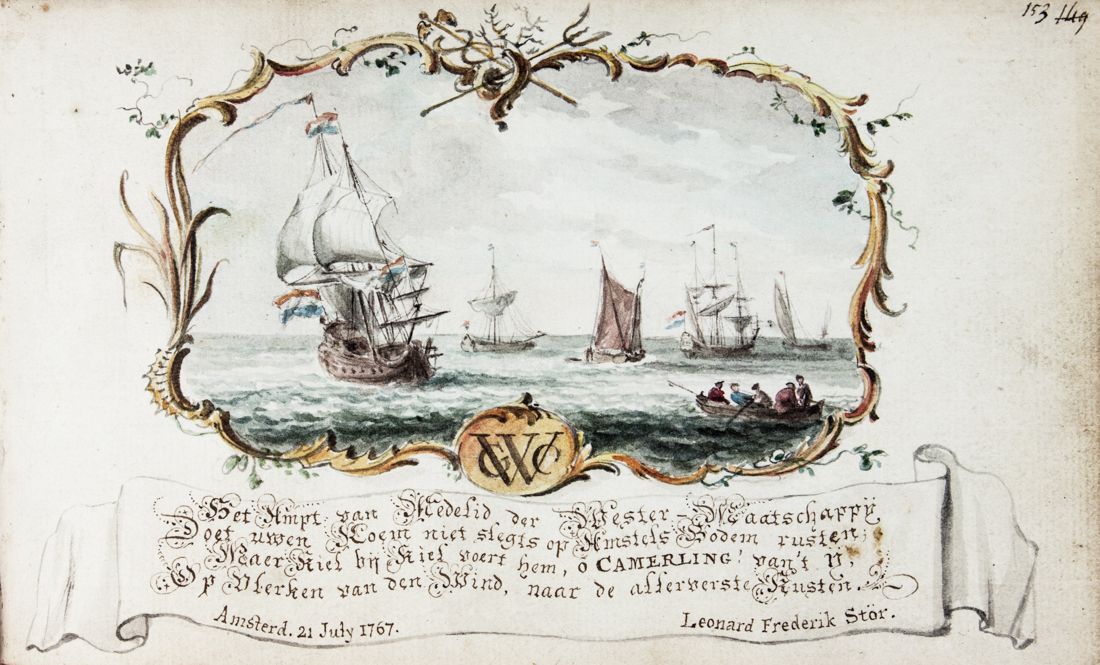 153 149
GWC
Het Ampt van Medelid der Wester-Maatschappÿ
Doet uwen Roem niet slegts op Amstels Bodem rusten;
Maer Kiel bij Kiel voert hem, ô CAMERLING! van't Y,
Op Vlerken van den Wind, naar de alferverste Kusten.
Amsterd. 21 July 1767.
Leonard Frederik Stör.